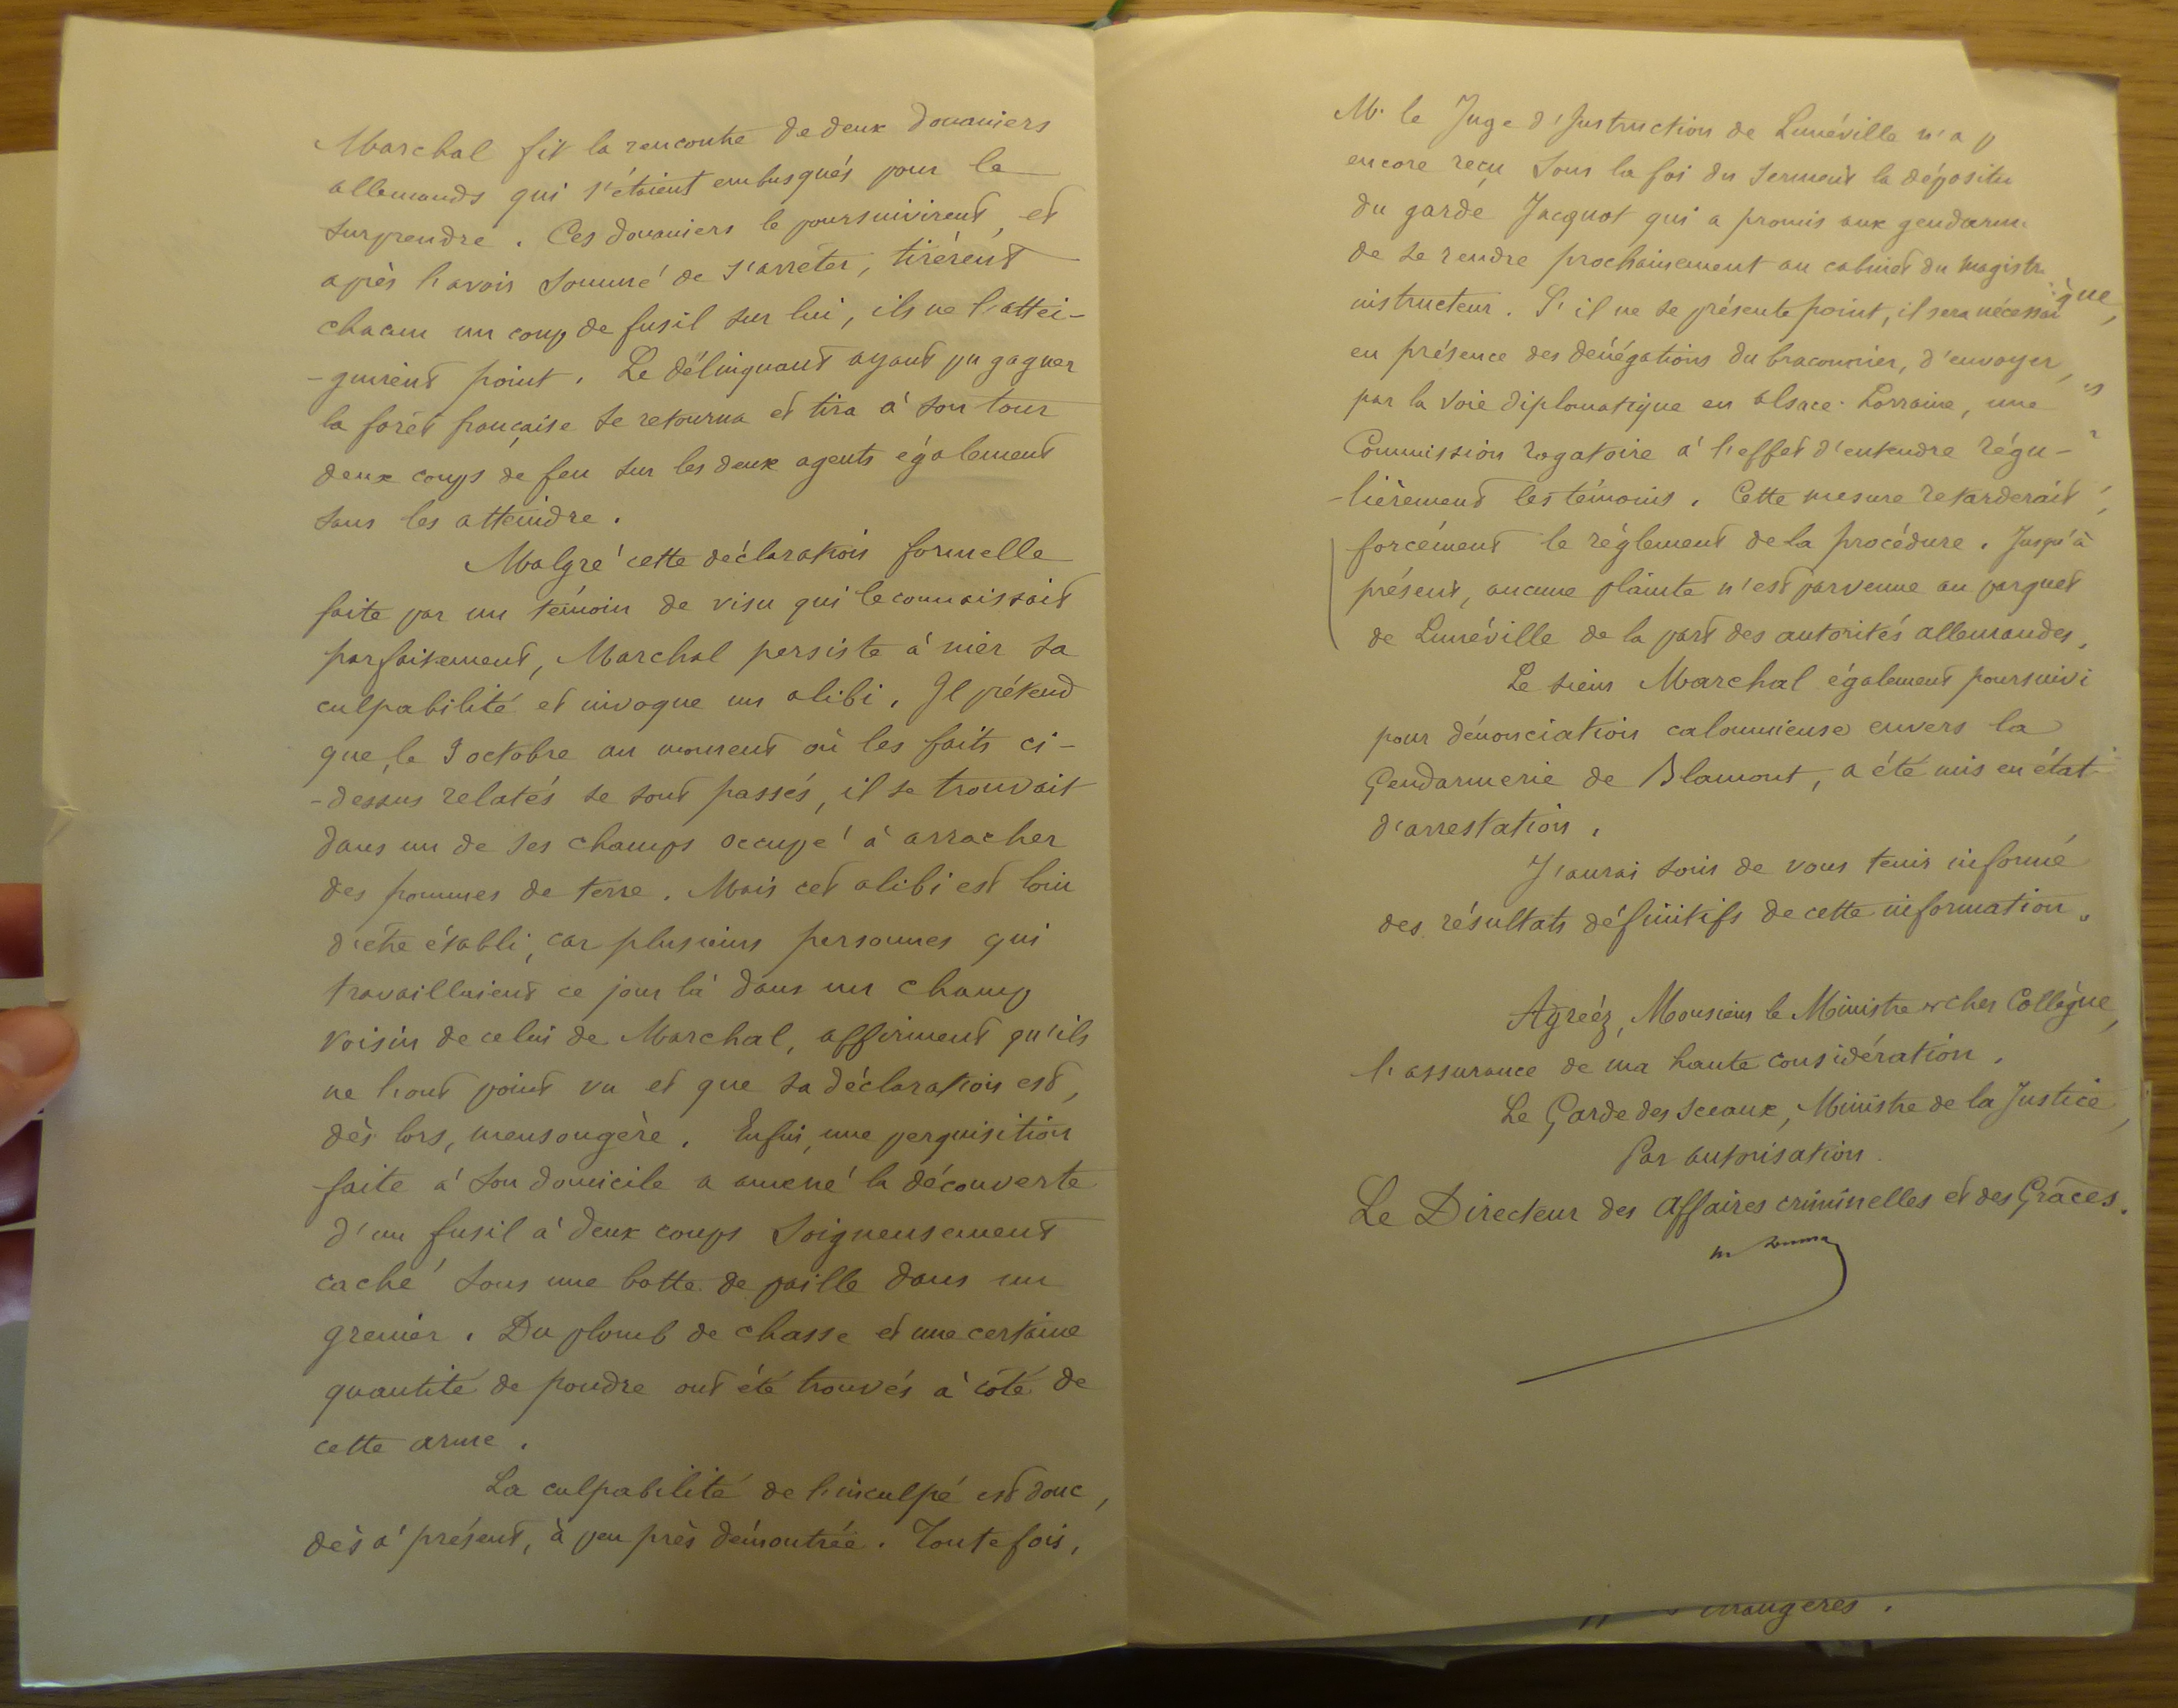 Marchal fit la rencontre de deux douaniers
allemands qui s'étaient embusqués pour le
surprendre. Ces douaniers le poursuivirent, et
après l'avoir sommé de s'arrêter, tirèrent
chacun un coup de fusil sur lui, ils ne l'attei-
-gnirent point. Le délinquant ayant pu gagner
la forêt française se retourna et tira à son tour
deux coups de feu sur les deux agents également
sans les atteindre.
Malgré cette déclaration formelle
faite par un témoin de visu qui le connaissait
parfaitement, Marchal persiste à nier sa
culpabilité et invoque un alibi. Il prétend
que, le 9 octobre au moment où les faits ci-
-dessus relatés se sont passés, il se trouvait
dans un de ses champs occupé à arracher
des pommes de terre. Mais cet alibi est loin
d'être établi, car plusieurs personnes qui
travaillaient ce jour là dans un champ
voisin de celui de Marchal, affirment qu'ils
ne l'ont point vu et que sa déclaration est,
dès lors, mensongère. Enfin, une perquisition
faite à son domicile a amené la découverte
d'un fusil à deux coups soigneusement
caché sous une botte de paille dans un
grenier. Du plomb de chasse et une certaine
quantité de poudre ont été trouvés à côté de
cette arme.
La culpabilité de l'inculpé est donc,
dès à présent, à peu près démontrée. Toutefois,
M. le Juge d'Instruction de Lunéville n'a p
encore reçu sous la foi du serment la dépositi
du garde Jacquot qui a promis aux gendarm
de se rendre prochainement au cabinet du magistr
instructeur. S'il ne se présente point, il sera nécessai
en présence des dénégations du braconnier, d'envoyer,
par la voie diplomatique en Alsace-Lorraine, une
Commission rogatoire à l'effet d'entendre régu-
-lièrement les témoins. Cette mesure retarderait
forcément le règlement de la procédure. Jusqu'à
présent, aucune plainte n'est parvenue au parquet
de Lunéville de la part des autorités allemandes.
Le sieur Marchal également poursuivi
pour dénonciation calomnieuse envers la
Gendarmerie de Blamont, a été mis en état
d'arrestation.
J'aurai soin de vous tenir informé
des résultats définitifs de cette information.
Agréez, Monsieur le Ministre et cher Collègue,
l'assurance de ma haute considération.
Le Garde des Sceaux, Ministre de la Justice,
Par autorisation.
Le Directeur des Affaires criminelles et des Grâces.